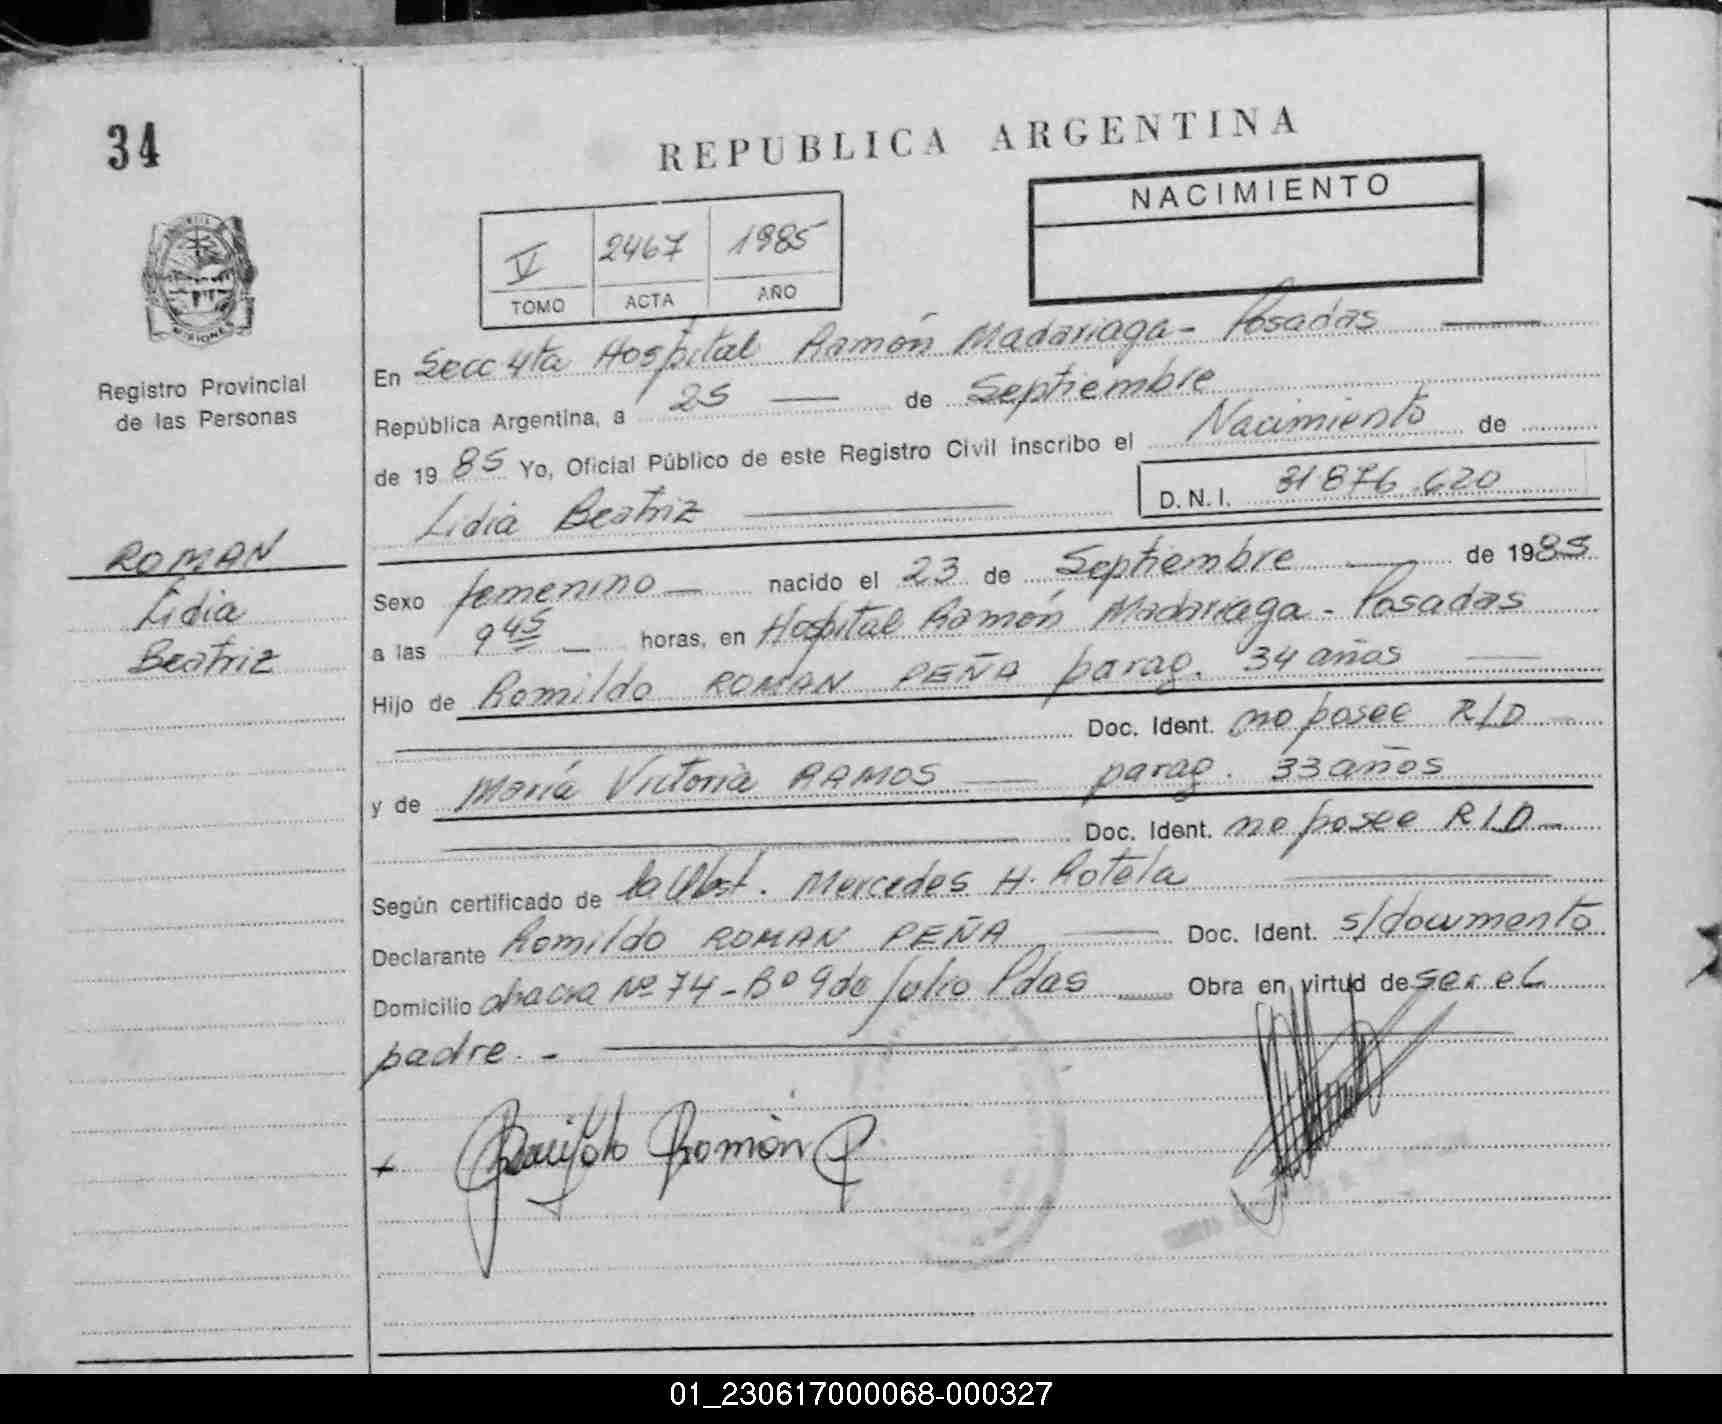 34
REPUBLICA ARGENTINA
NACIMIENTO
V 2467 1985
TOMO ACTA AÑO
Registro Provincial
de las Personas
En Secc 4ta Hospital Ramón Madariaga - Posadas
República Argentina, a 25 de Septiembre
de 1985 Yo, Oficial Público de este Registro Civil inscribo el Nacimiento de
Lidia Beatriz D.N.I. 31876.620
ROMAN
Lidia
Beatriz
Sexo femenino nacido el 23 de Septiembre de 1985
a las 9 45 horas, en Hospital Ramón Madariaga - Posadas
Hijo de Romildo ROMAN PEÑA parag. 34 años
Doc. Ident. no posee R/D
y de María Victoria RAMOS parag. 33 años
Doc. Ident. no posee R/D
Según certificado de la Obst. Mercedes H. Rotela
Declarante Romildo ROMAN PEÑA Doc. Ident. s/documento
Domicilio chacra Nº 74 - Bº 9 de Julio Pdas Obra en virtud de ser el
padre. -
Román P
01_230617000068-000327